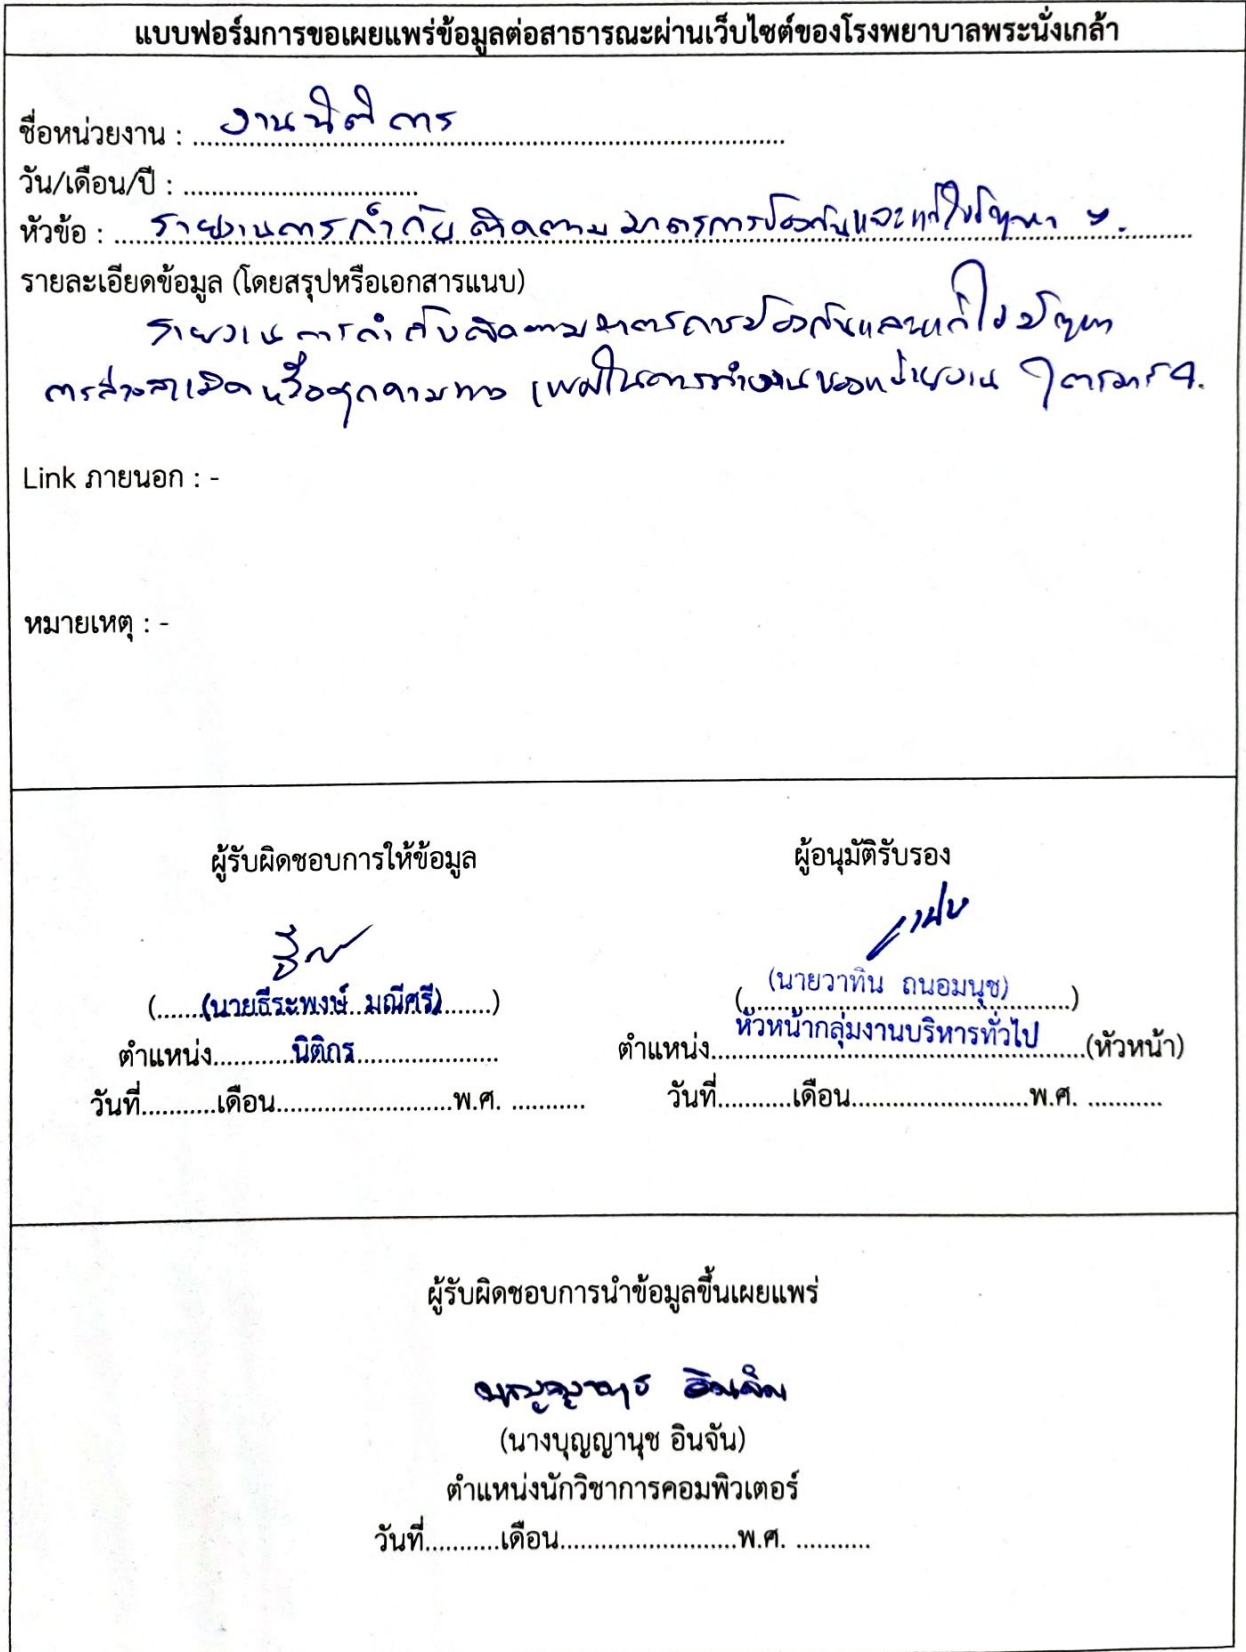 แบบฟอร์มการขอเผยแพร่ข้อมูลต่อสาธารณะผ่านเว็บไซต์ของโรงพยาบาลพระนั่งเกล้า
ชื่อหน่วยงาน : งานนิติการ
วัน/เดือน/ปี : ..................................
หัวข้อ : รายงานการกำกับติดตามมาตรการป้องกันและแก้ไขปัญหา ฯ.
รายละเอียดข้อมูล (โดยสรุปหรือเอกสารแนบ)
รายงานการกำกับติดตามมาตรการป้องกันและแก้ไขปัญหา
การล่วงละเมิดหรือคุกคามทางเพศในการทำงานของหน่วยงาน ไตรมาส 4.
Link ภายนอก : -
หมายเหตุ : -
ผู้รับผิดชอบการให้ข้อมูล
ผู้อนุมัติรับรอง
(......(นายธีระพงษ์ มณีศรี).......)
(นายวาทิน ถนอมนุช)
ตำแหน่ง...........นิติกร....................
ตำแหน่ง หัวหน้ากลุ่มงานบริหารทั่วไป (หัวหน้า)
วันที่...........เดือน..........................พ.ศ. ...........
วันที่...........เดือน..........................พ.ศ. ...........
ผู้รับผิดชอบการนำข้อมูลขึ้นเผยแพร่
บุญญานุช อินจัน
(นางบุญญานุช อินจัน)
ตำแหน่งนักวิชาการคอมพิวเตอร์
วันที่...........เดือน..........................พ.ศ. ...........